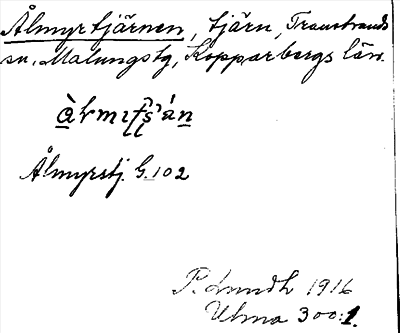 Ålmyrtjärnen, tjärn, Transtrands
sn, Malungs tg, Kopparbergs län.
Ålmyrstj. G.102
P. Lundh 1916
Ulma 300:1.